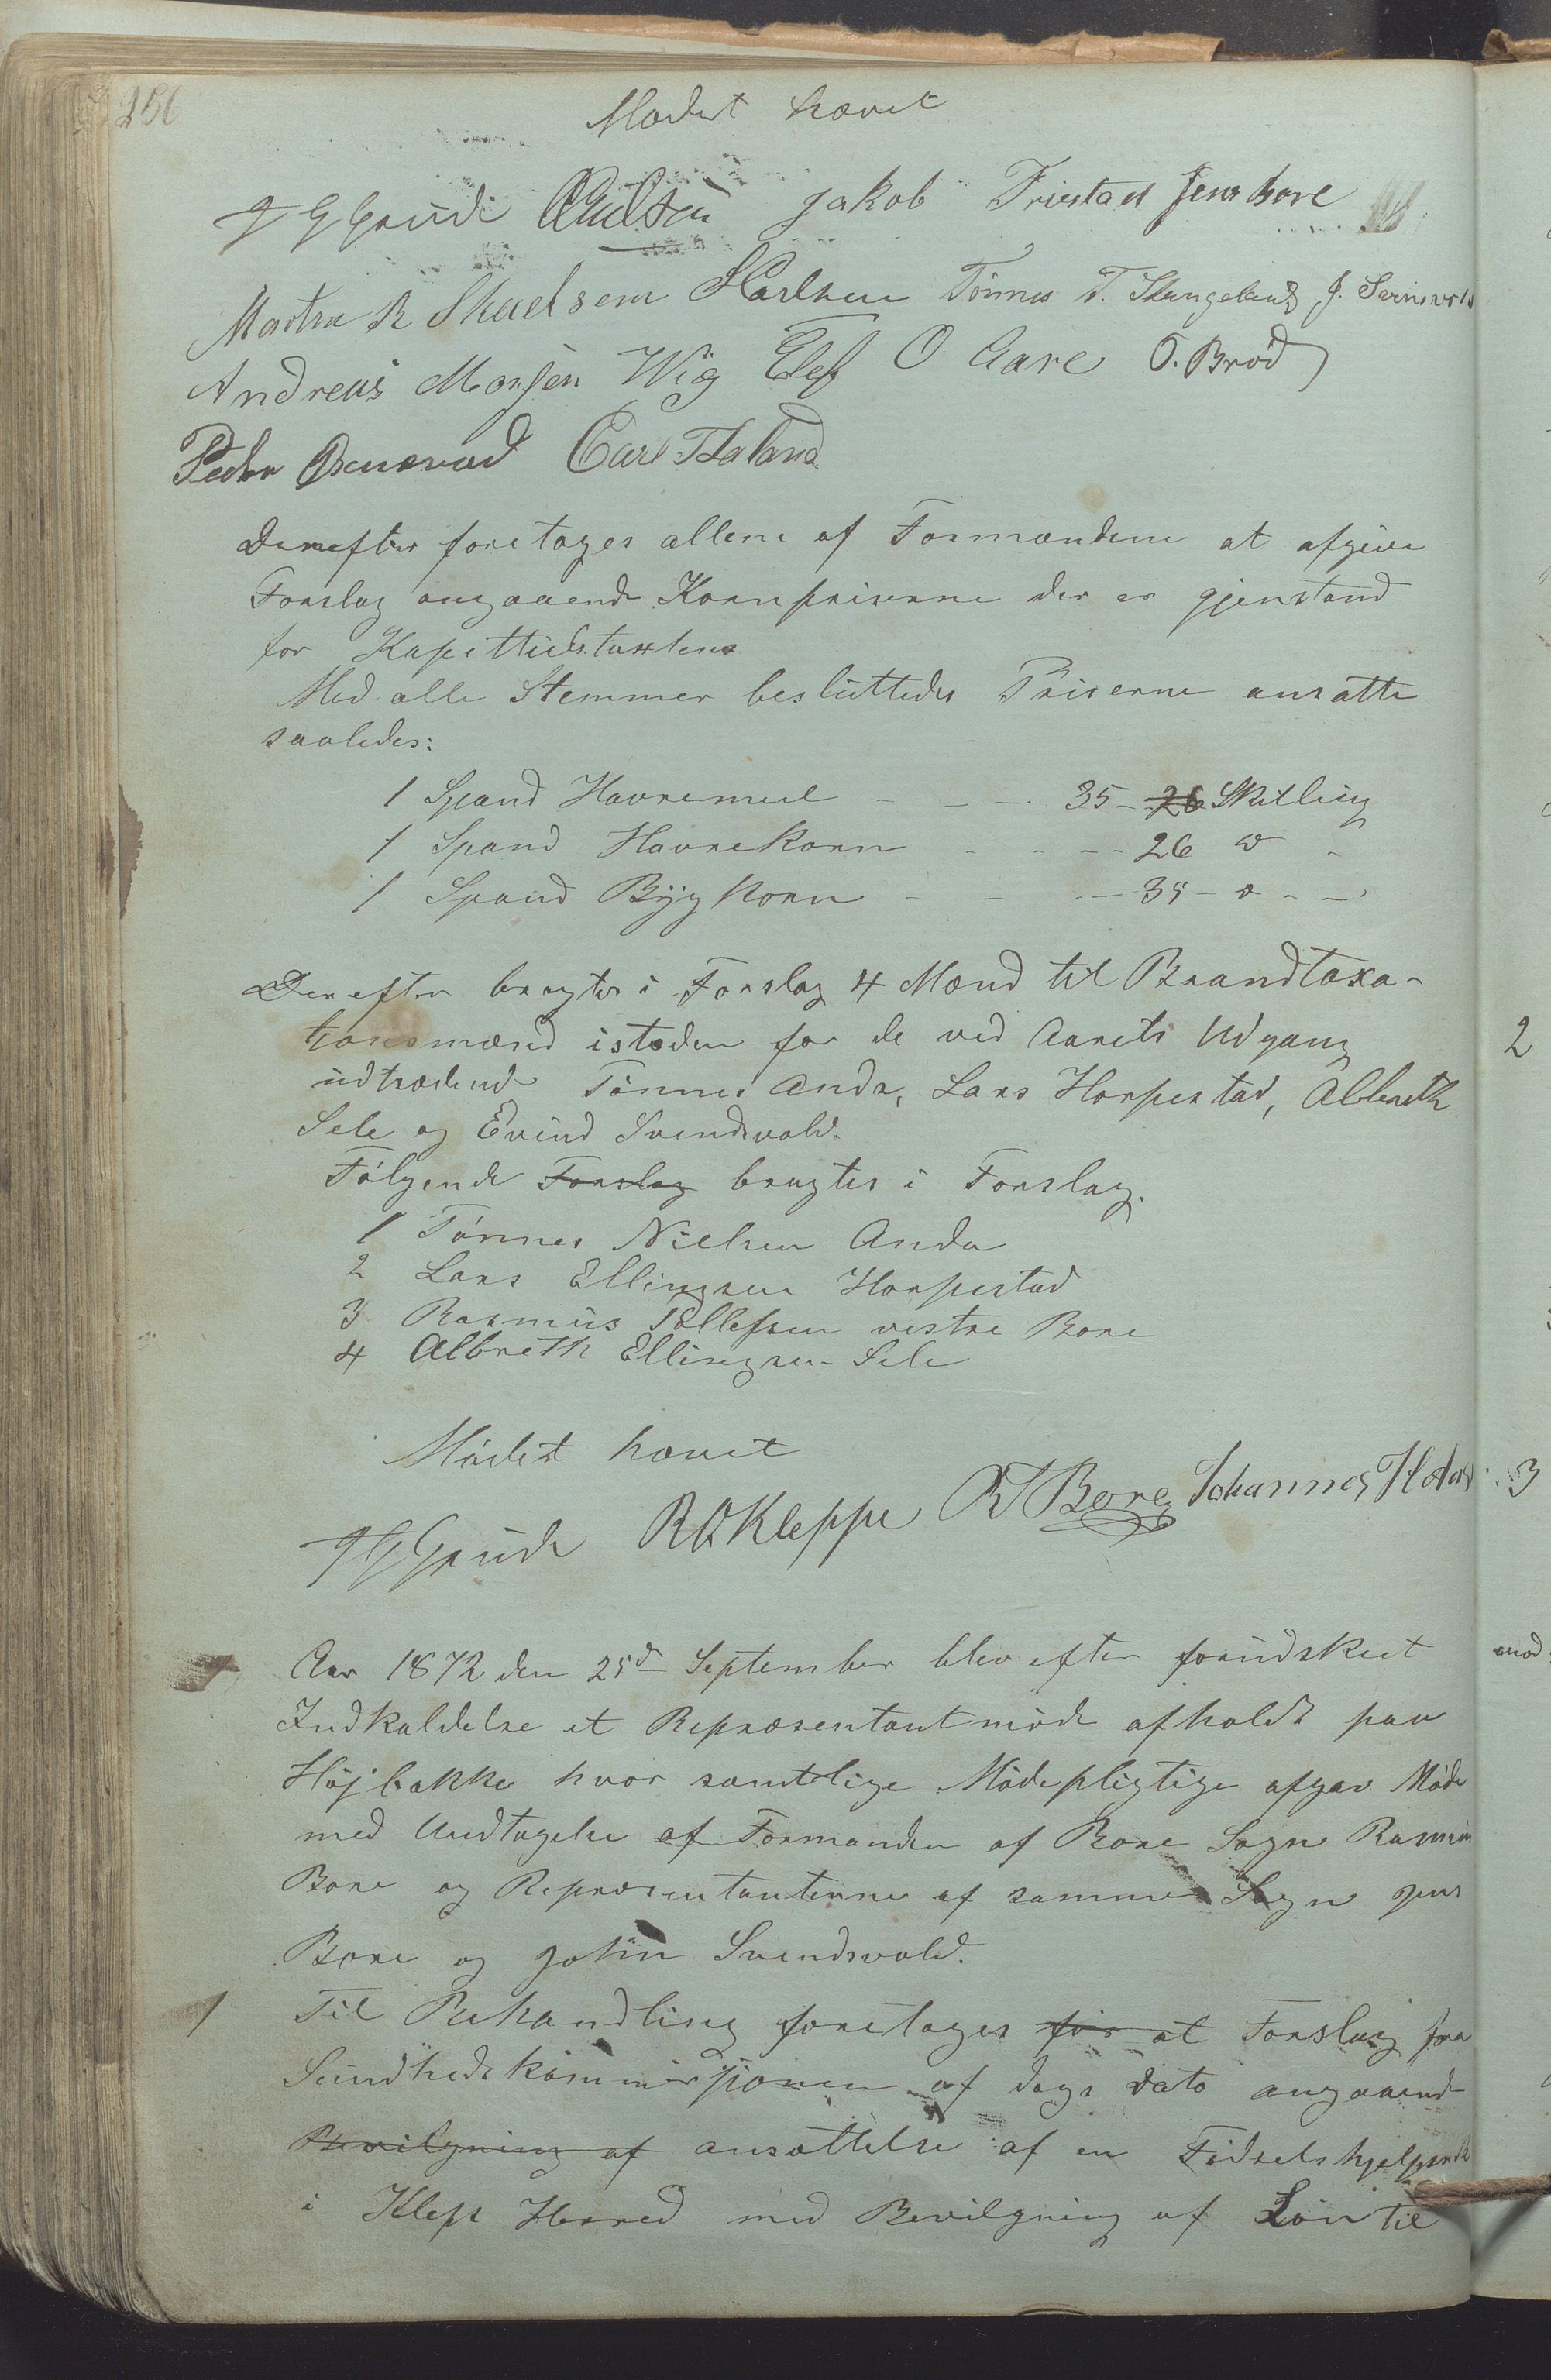 256
Mødet hævet
Jakob Friestad Jens Bore
Martin R Skadsem Tønnes T. Skangeland J.
Andreas Monsen Wig Elef O Aare O. Brød
Peder Carl Haland
Derefter foretages allene af Formændene at afgive
Forslag angaaende Kornpriserne der er gjenstand
for Kapittelstaxten
Med alle Stemmer besluttedes Priserne ansatte
saaledes:
1 Spand Havremeel - - - 35 - 26 Skilling
1 Spand Havrekorn - - - - 26 do -
1 Spand Bygkorn - - - - 35 - do - -
Derefter bragtes i Forslag 4 Mænd til Brandtaxa-
tionsmænd isteden for de ved Aarets Udgang
udtrædende Tønnes Anda, Lars Horpestad, Albreth
Sele og Evind Svendsvold.
Følgende Forslag bragtes i Forslag.
1 Tønnes Nielsen Anda
2 Lars Ellingsen Horpestad
3 Rasmus Tollefsen vestre Bore
4 Albreth Ellingsen Sele
Mødet hævet
R O Kleppe R T Bore Johannes
Aar 1872 den 25d September blev efter forudskeet
Indkaldelse et Repræsentantmøde afholdt paa
Højbakke hvor samtlige Mødepligtige afgav Møde
med Undtagelse af Formanden af Bore Sogn Rasmus
Bore og Repræsentanterne af samme Sogn Jens
Bore og John Svendsvold.
1 Til Behandling foretages for at Forslag fra
Sundhedskommissjonen af dags dato angaaende
Bevilgning af ansættelse af en Fødselshjelperske
i Klep Herred med Bevilgning af Løn til
2
3